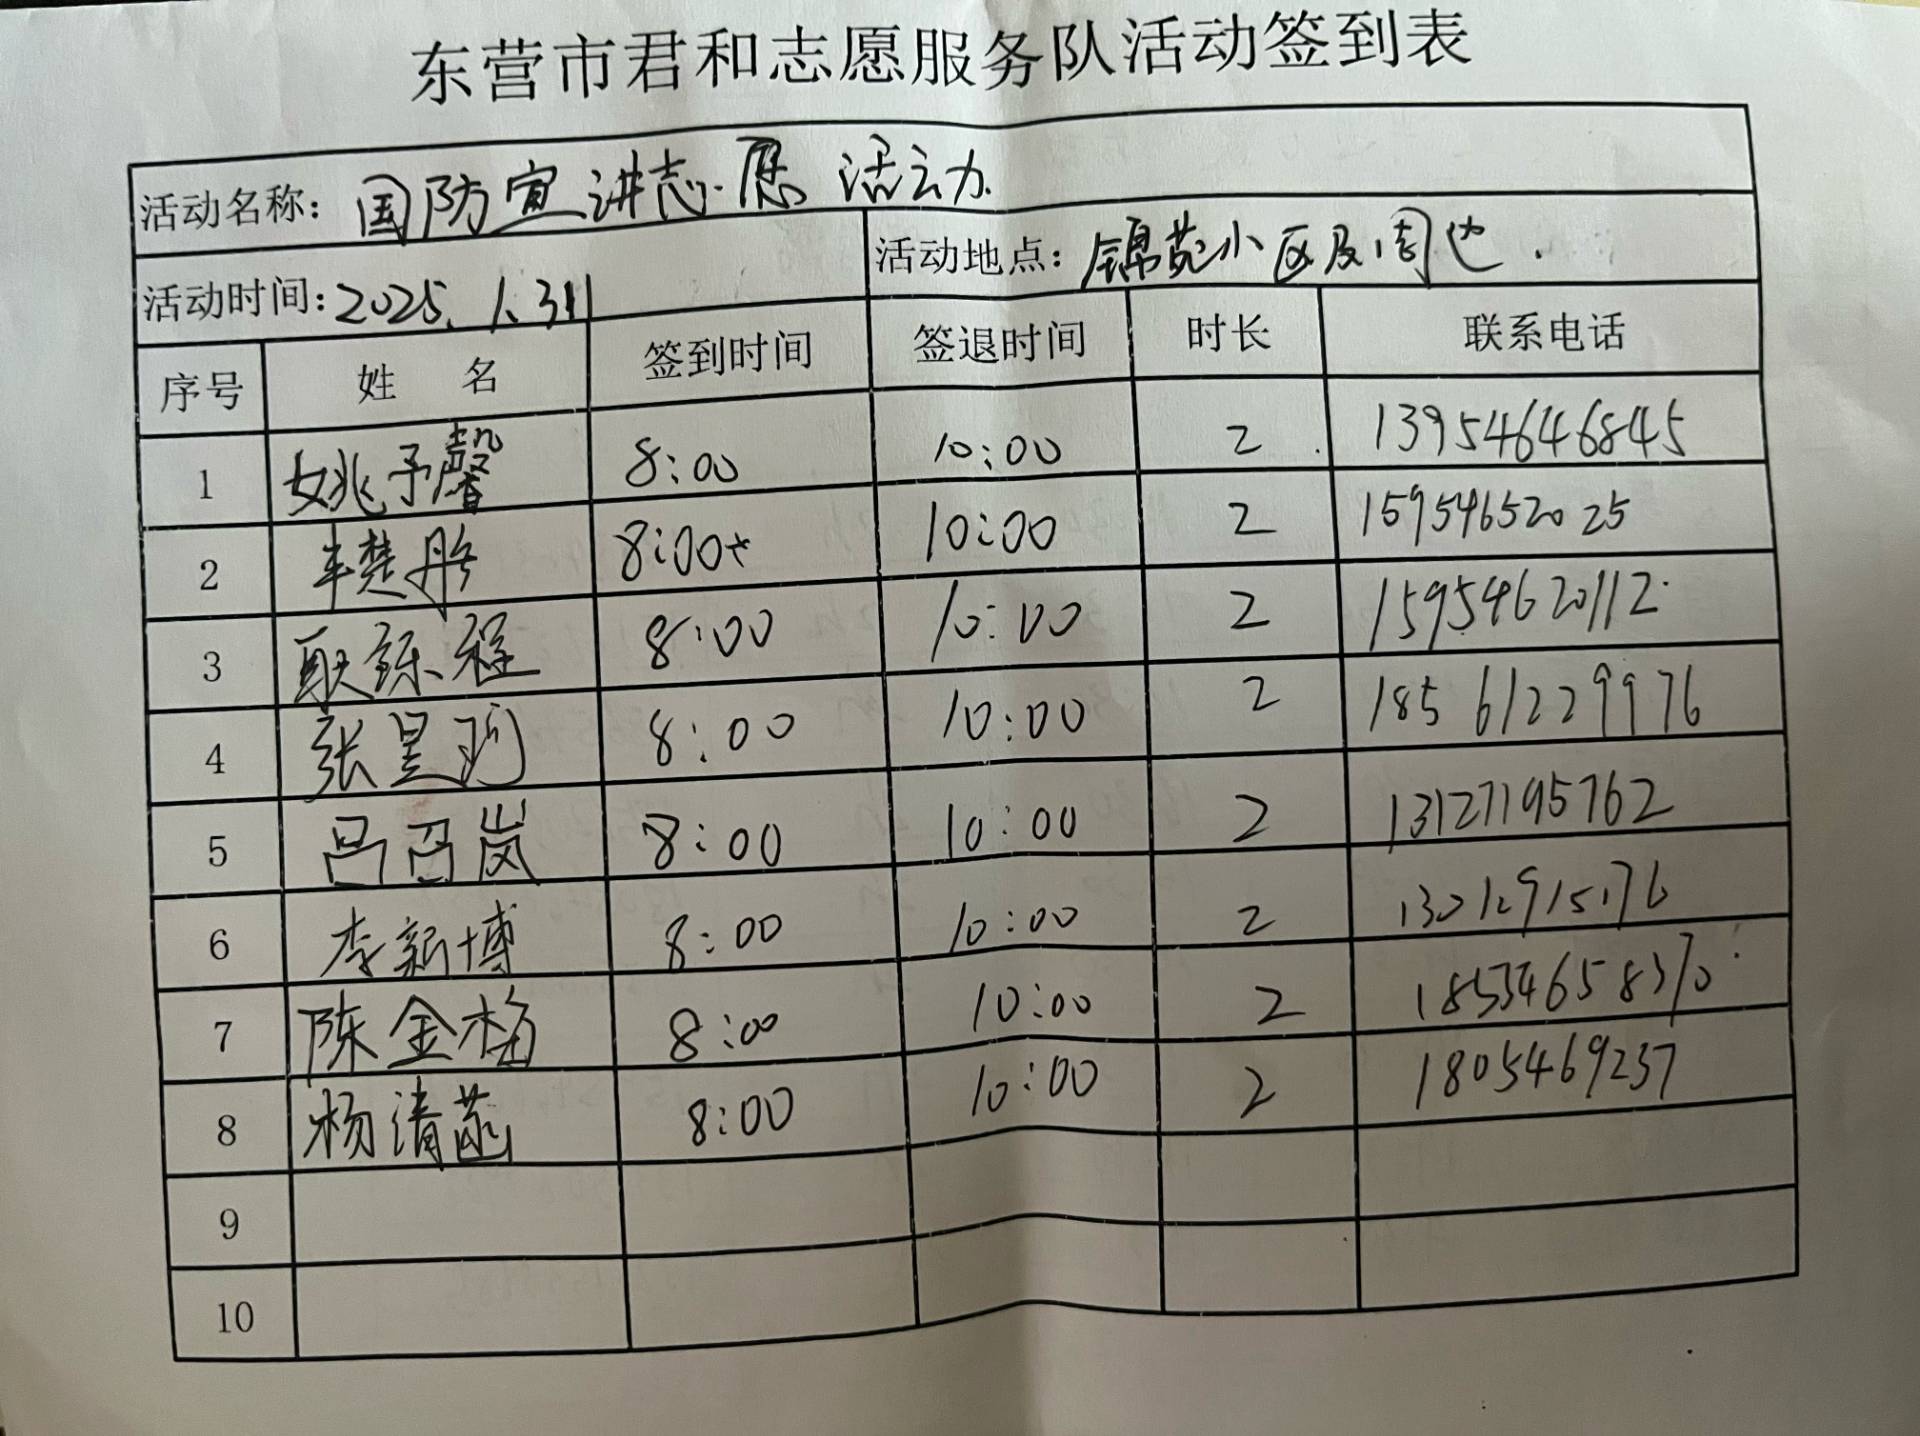 东营市君和志愿服务队活动签到表
活动名称: 国防宣讲志愿活动.
活动时间: 2025.1.31 活动地点: 锦苑小区及周边.
序号 姓 名 签到时间 签退时间 时长 联系电话
1 姚予馨 8:00 10:00 2 13954646845
2 8:00 10:00 2 15954652025
3 耿铄程 8:00 10:00 2 15954620112
4 张昱 8:00 10:00 2 18561229976
5 吕召岚 8:00 10:00 2 13127195762
6 李新博 8:00 10:00 2 13012915176
7 陈金梅 8:00 10:00 2 18534658370
8 杨清菡 8:00 10:00 2 1805469237
9
10